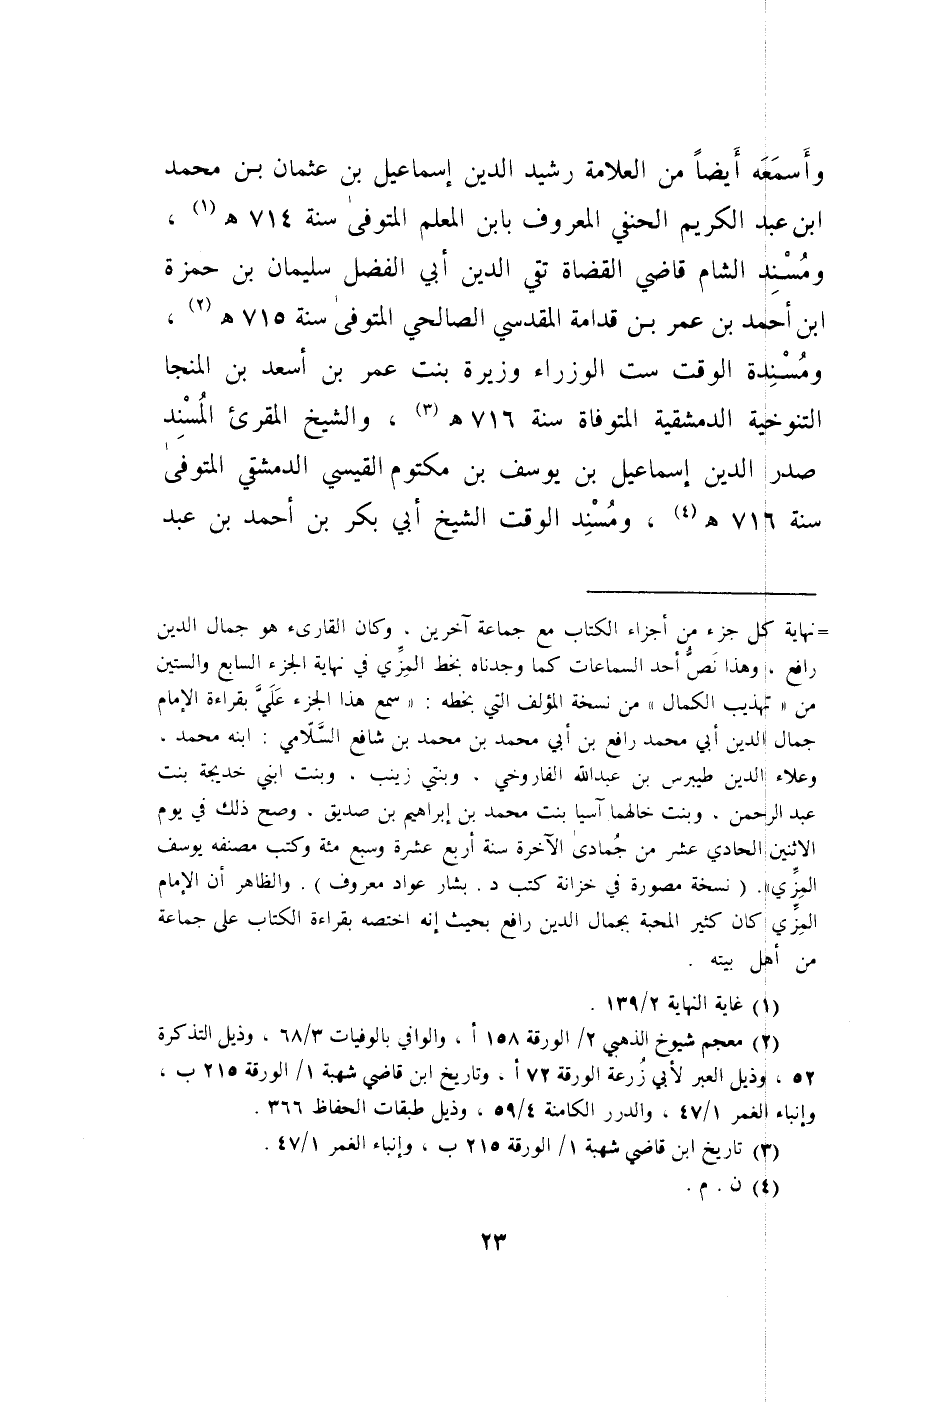 وأَسمَعَه أَيضاً من العلامة رشيد الدين إسماعيل بن عثمان بـن محمد
ابن عبد الكريم الحنفي المعروف بابن المعلم المتوفىٰ سنة ٧١٤ هـ (١) ،
ومُسْنِد الشام قاضي القضاة تقي الدين أبي الفضل سليمان بن حمزة
ابن أحمد بن عمر بـن قدامة المقدسي الصالحي المتوفىٰ سنة ٧١٥ هـ (٢) ،
ومُسْنِدة الوقت ست الوزراء وزيرة بنت عمر بن أسعد بن المنجا
التنوخية الدمشقية المتوفاة سنة ٧١٦ هـ (٣) ، والشيخ المقرئ المُسْنِد
صدر الدين إسماعيل بن يوسف بن مكتوم القيسي الدمشقي المتوفىٰ
سنة ٧١٦ هـ (٤) ، ومُسْنِد الوقت الشيخ أبي بكر بن أحمد بن عبد
=نهاية كل جزء من أجزاء الكتاب مع جماعة آخرين . وكان القارىء هو جمال الدين
رافع . وهذا نَصُّ أحد السماعات كما وجدناه بخط المِزِّي في نهاية الجزء السابع والستين
من « تهذيب الكمال » من نسخة المؤلف التي بخطه : « سمع هذا الجزء عَلَيَّ بقراءة الإمام
جمال الدين أبي محمد رافع بن أبي محمد بن محمد بن شافع السَّلّامي : ابنه محمد .
وعلاء الدين طيبرس بن عبدالله الفاروخي . وبنتي زينب . وبنت ابني خديجة بنت
عبد الرحمن . وبنت خالهما آسيا بنت محمد بن إبراهيم بن صديق . وصح ذلك في يوم
الاثنين الحادي عشر من جُمادىٰ الآخرة سنة أربع عشرة وسبع مئة وكتب مصنفه يوسف
المِزِّي». ( نسخة مصورة في خزانة كتب د . بشار عواد معروف ) . والظاهر أن الإمام
المِزِّي كان كثير المحبة بجمال الدين رافع بحيث إنه اختصه بقراءة الكتاب على جماعة
من أهل بيته .
(١) غاية النهاية ١٣٩/٢ .
(٢) معجم شيوخ الذهبي ٢/ الورقة ١٥٨ أ ، والوافي بالوفيات ٦٨/٣ ، وذيل التذكرة
٥٢ ، وذيل العبر لأبي زُرعة الورقة ٧٢ أ . وتاريخ ابن قاضي شهبة ١/ الورقة ٢١٥ ب ،
وإنباء الغمر ٤٧/١ ، والدرر الكامنة ٥٩/٤ ، وذيل طبقات الحفاظ ٣٦٦ .
(٣) تاريخ ابن قاضي شهبة ١/ الورقة ٢١٥ ب ، وإنباء الغمر ٤٧/١ .
(٤) ن . م .
٢٣